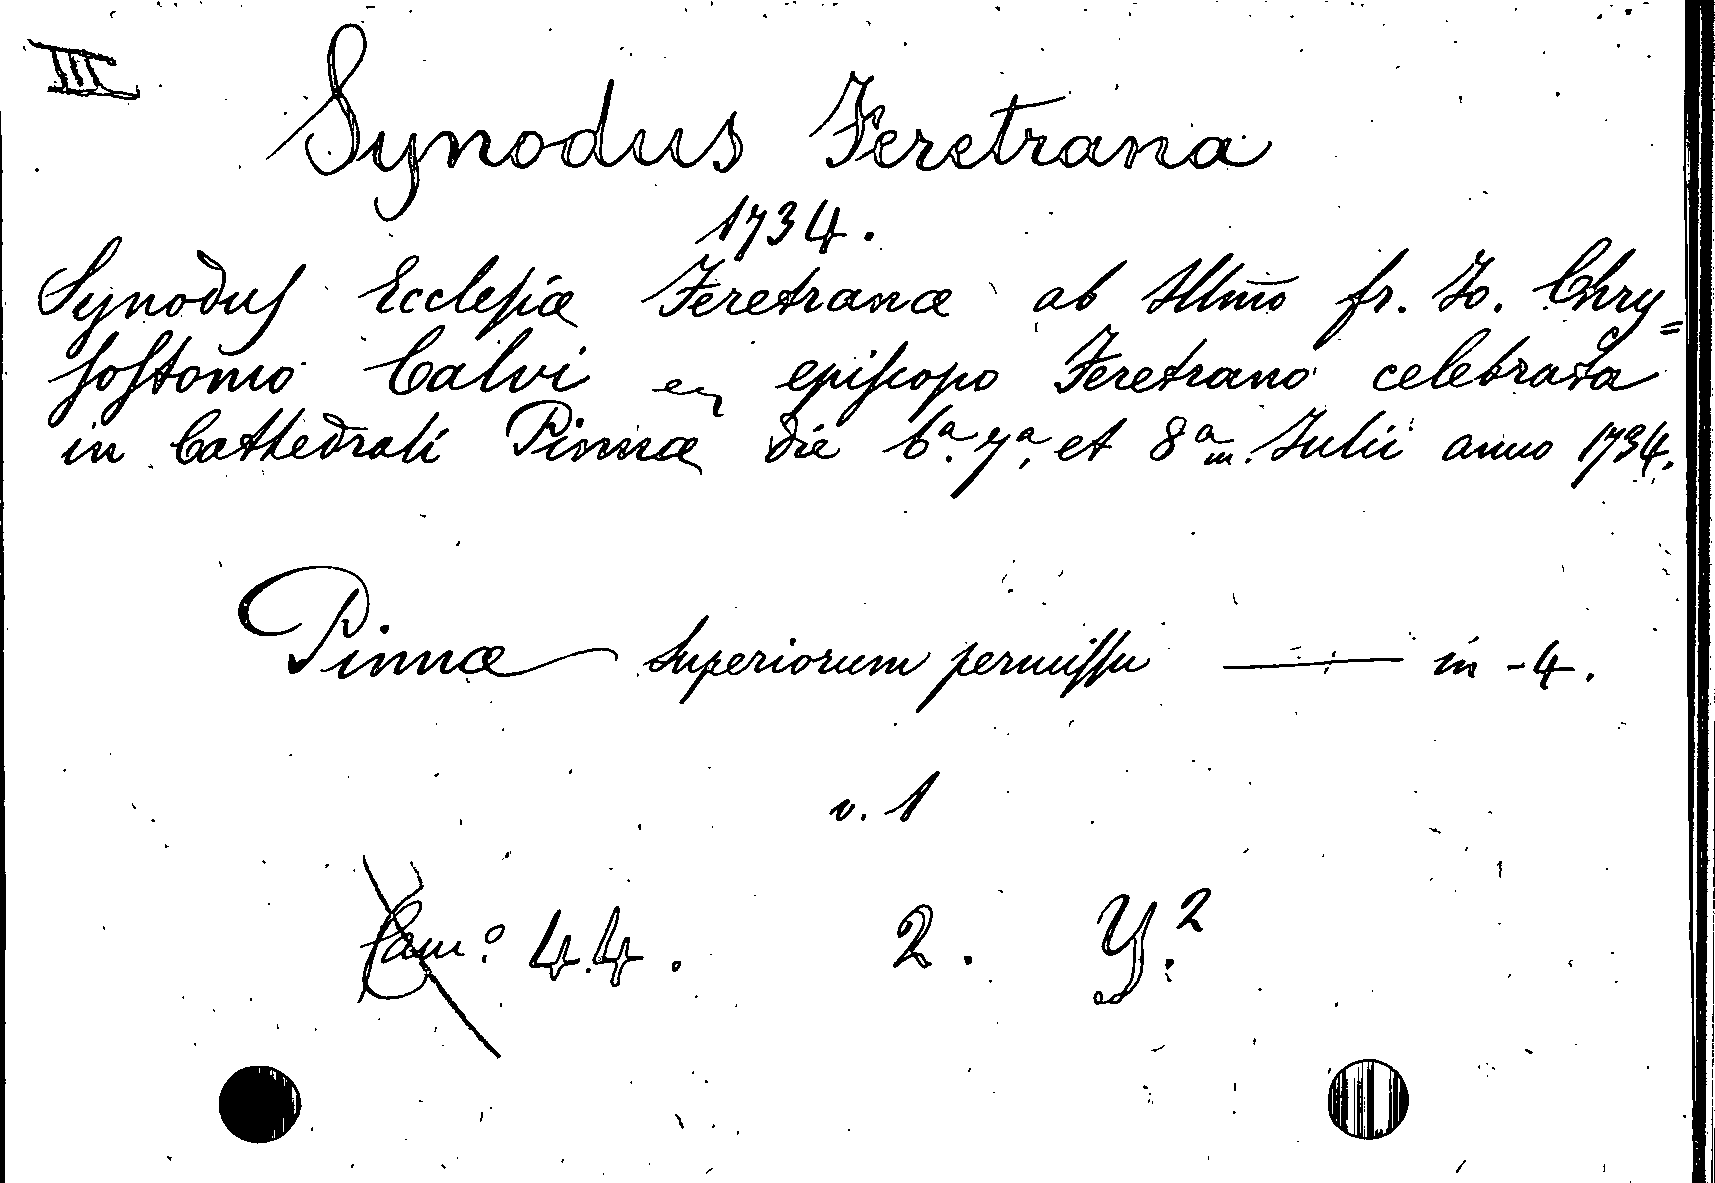 III
Synodus Feretrana
1734.
Synodus Ecclesiæ Feretranæ ab Illm̃o fr. Io. Chry=
sostomo Calvi eq episcopo Feretrano celebrata
in Cathedrali Pinnæ die 6ª. 7ª. et 8ª m. Julii anno 1734.
Pinnæ superiorum permissu — in -4.
v. 1
Cam.º 44. 2. Y.²